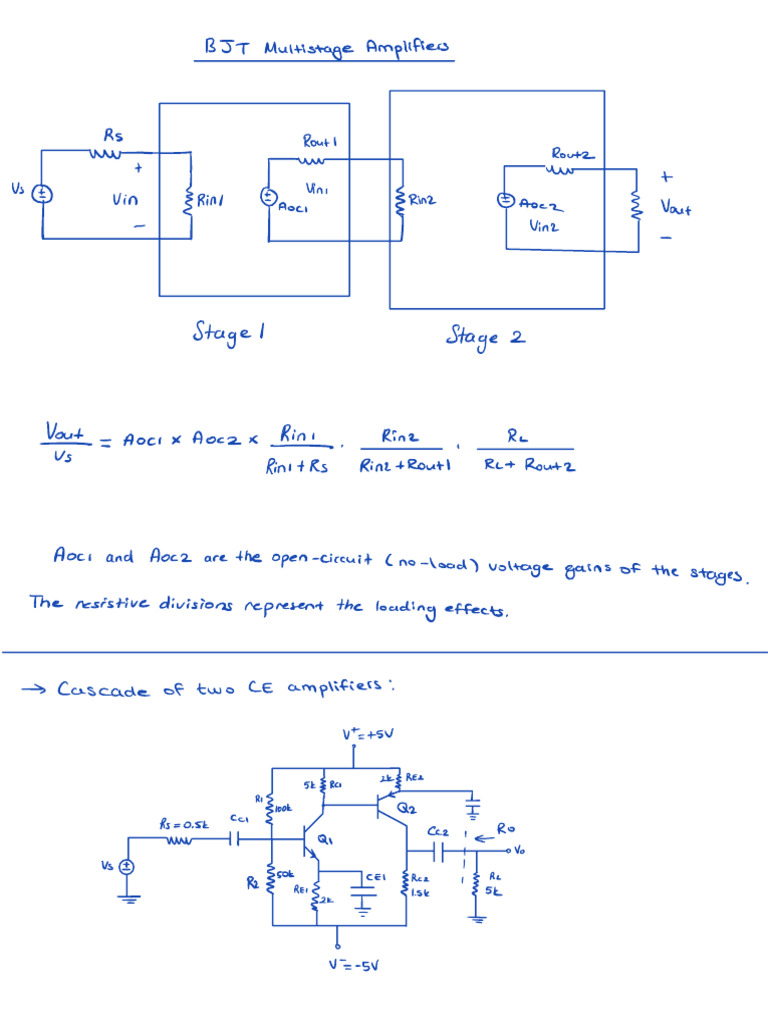 BJT Multistage Amplifiers
Rs
Rout1
Rout2
Vs
+
Vin
−
Rin1
Vin1
Aoc1
Rin2
Aoc2
Vin2
+
Vout
−
Stage 1
Stage 2
Vout/Vs = Aoc1 × Aoc2 × Rin1/(Rin1 + Rs) . Rin2/(Rin2 + Rout1) . RL/(RL + Rout2)
Aoc1 and Aoc2 are the open-circuit (no-load) voltage gains of the stages.
The resistive divisions represent the loading effects.
→ Cascade of two CE amplifiers:
V⁺=+5V
5k
Rc1
2k
RE2
R1
100k
Rs = 0.5k
Cc1
Q1
Q2
Cc2
Ro
Vo
Vs
R2
50k
RE1
2k
CE1
Rc2
1.5k
RL
5k
V⁻=-5V